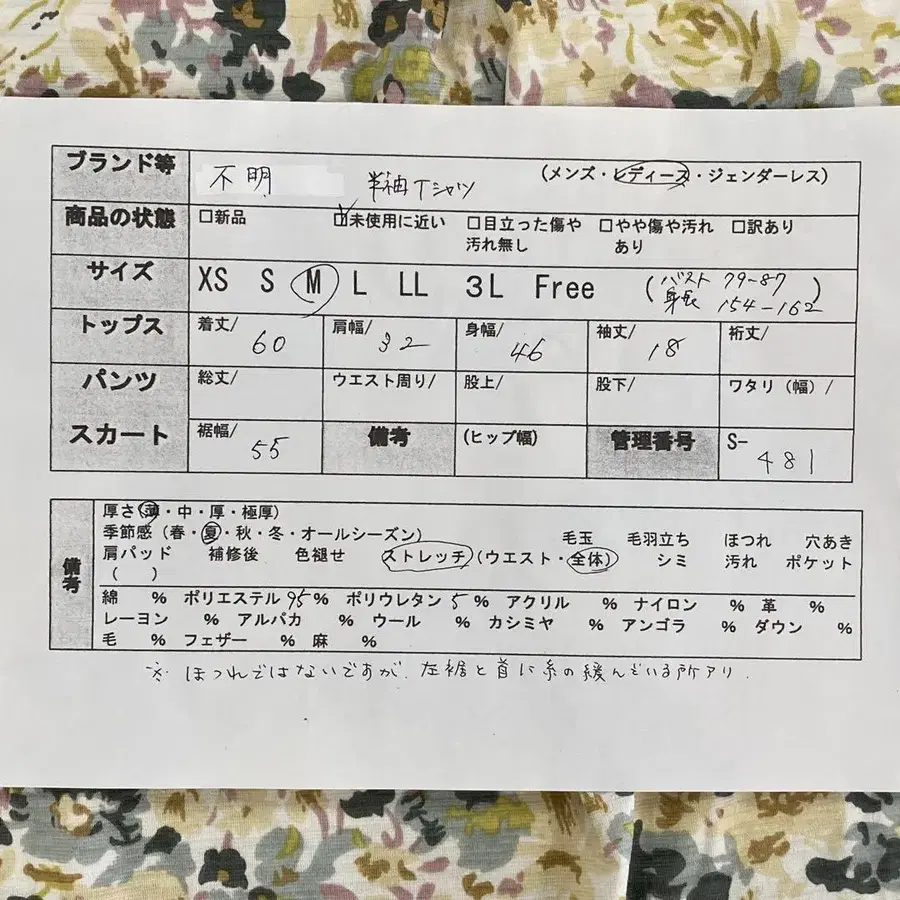 ブランド等 不明 半袖Tシャツ (メンズ・レディース・ジェンダーレス)
商品の状態 □新品 ☑未使用に近い □目立った傷や汚れ無し □やや傷や汚れあり □訳あり
サイズ XS S M L LL 3L Free (バスト 79-87 身長 154-162)
トップス 着丈/ 60 肩幅/ 32 身幅/ 46 袖丈/ 18 裄丈/
パンツ 総丈/ ウエスト周り/ 股上/ 股下/ ワタリ(幅)/
スカート 裾幅/ 55 備考 (ヒップ幅) 管理番号 S-481
備考
厚さ(薄・中・厚・極厚)
季節感(春・夏・秋・冬・オールシーズン) 毛玉 毛羽立ち ほつれ 穴あき
肩パッド 補修後 色褪せ ストレッチ(ウエスト・全体) シミ 汚れ ポケット
( )
綿 % ポリエステル 95% ポリウレタン 5% アクリル % ナイロン % 革 %
レーヨン % アルパカ % ウール % カシミヤ % アンゴラ % ダウン %
毛 % フェザー % 麻 %
※ ほつれではないですが、左裾と首に糸の緩んでいる所アリ.